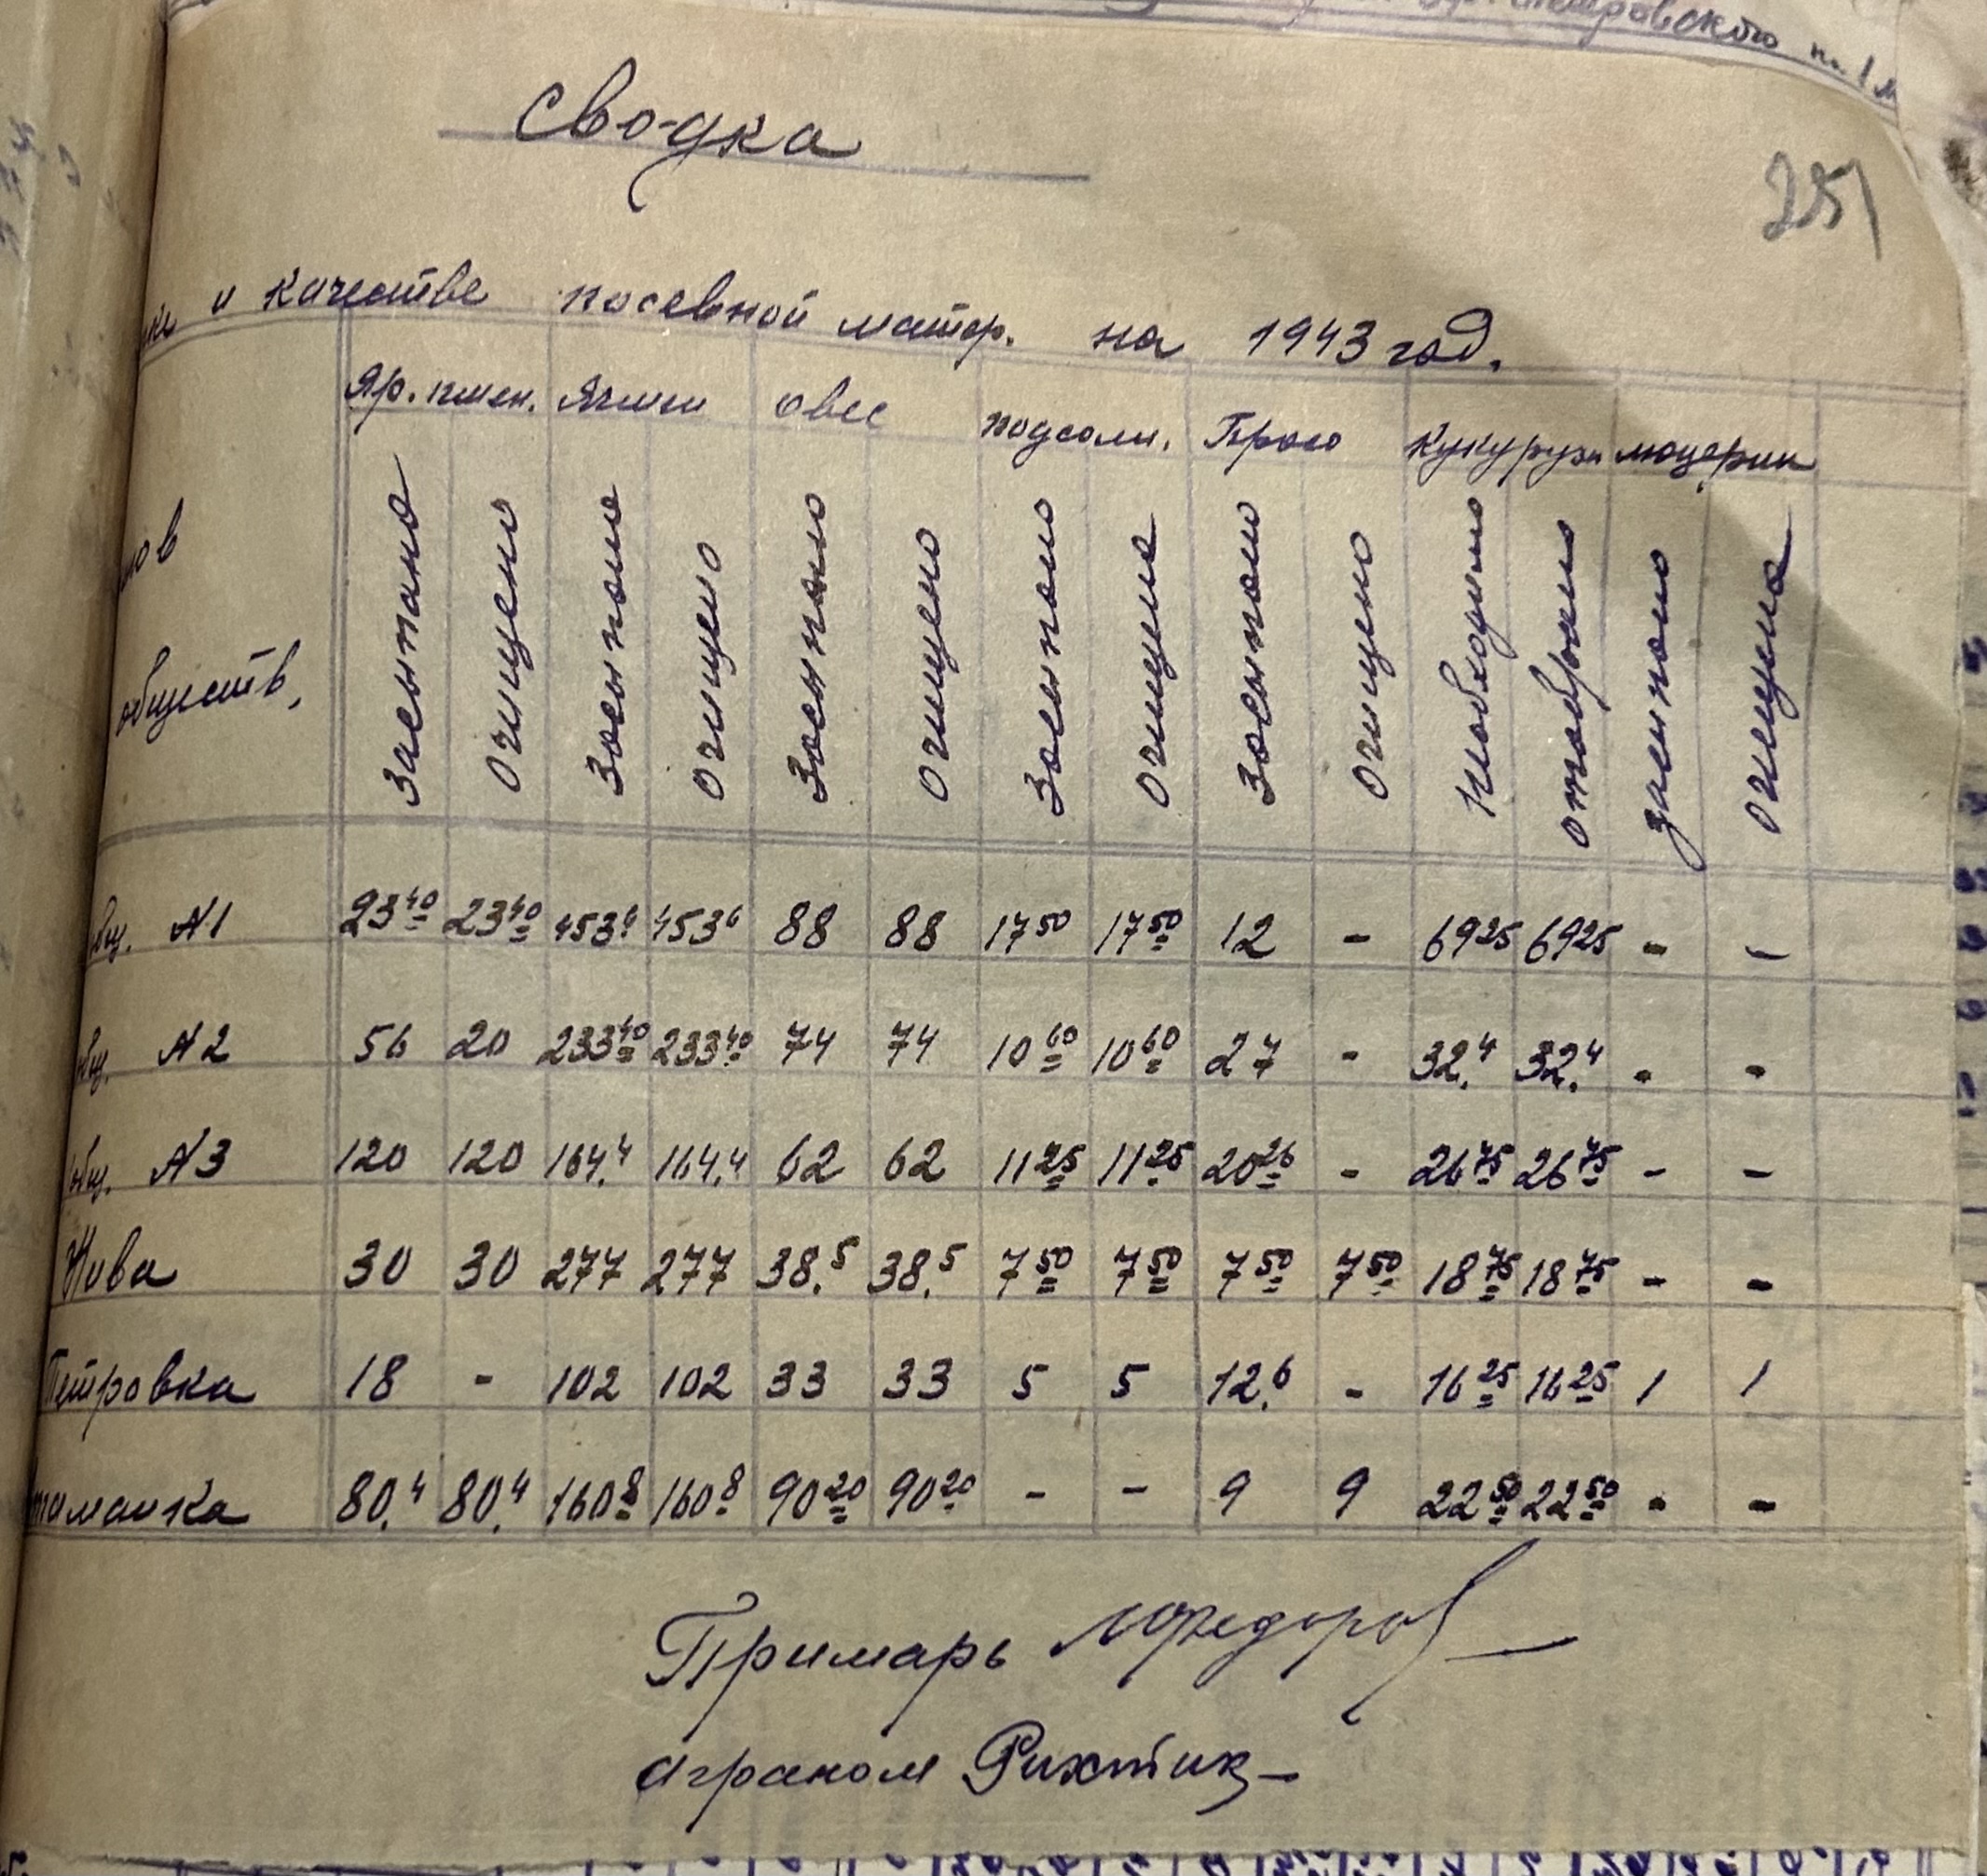 Сводка
251
и качестве посевной матер. на 1943 год.
Яр. пшен. Ячмен Овес подсолн. Просо Кукурузы люцерны
обществ.
Засыпано Очищено Засыпано Очищено Засыпано Очищено Засыпано Очищено Засыпано Очищено Необходимо отобрано засыпано очищено
общ. №1 23 40 23 40 453 6 453 6 88 88 17 50 17 50 12 - 69 25 69 25 - -
общ. №2 56 20 233 40 233 40 74 74 10 60 10 60 27 - 32.4 32.4 - -
общ. №3 120 120 164.4 164.4 62 62 11 25 11 25 20 26 - 26 75 26 75 - -
Нива 30 30 277 277 38.5 38.5 7 50 7 50 7 50 7 50 18 75 18 75 - -
Петровка 18 - 102 102 33 33 5 5 12.6 - 16 25 16 25 1 1
таманка 80.4 80.4 160 8 160 8 90 20 90 20 - - 9 9 22 50 22 50 - -
Примарь Федоров
Аграном Рихтик